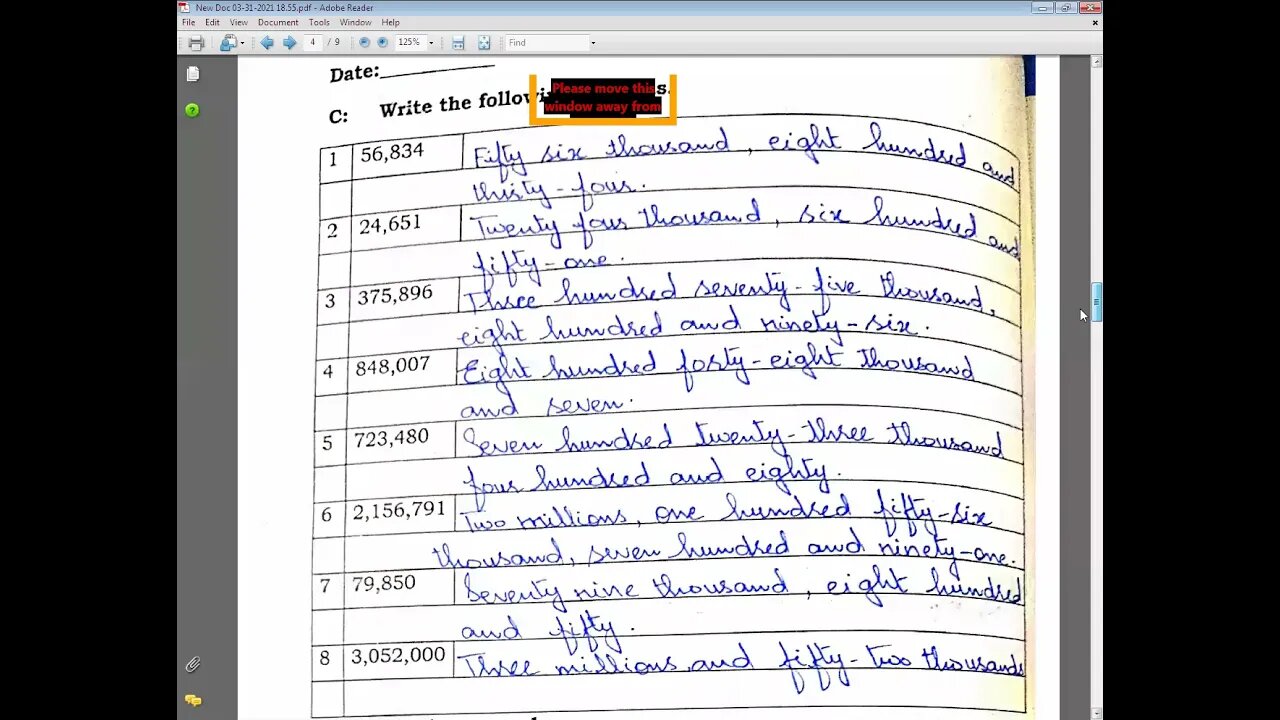 New Doc 03-31-2021 18.55.pdf - Adobe Reader
File Edit View Document Tools Window Help
4 / 9 125% Find
Date:
C: Write the
Please move this
window away from
s.
1 56,834 Fifty six thousand, eight hundred and
thirty-four.
2 24,651 Twenty four thousand, six hundred and
fifty-one.
3 375,896 Three hundred seventy-five thousand,
eight hundred and ninety-six.
4 848,007 Eight hundred forty-eight thousand
and seven.
5 723,480 Seven hundred twenty-three thousand
four hundred and eighty.
6 2,156,791 Two millions, one hundred fifty-six
thousand, seven hundred and ninety-one.
7 79,850 Seventy nine thousand, eight hundred
and fifty.
8 3,052,000 Three millions and fifty-two thousands